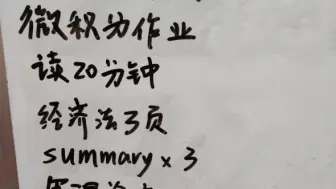 微积分作业
读20分钟
经济法3页
summary × 3